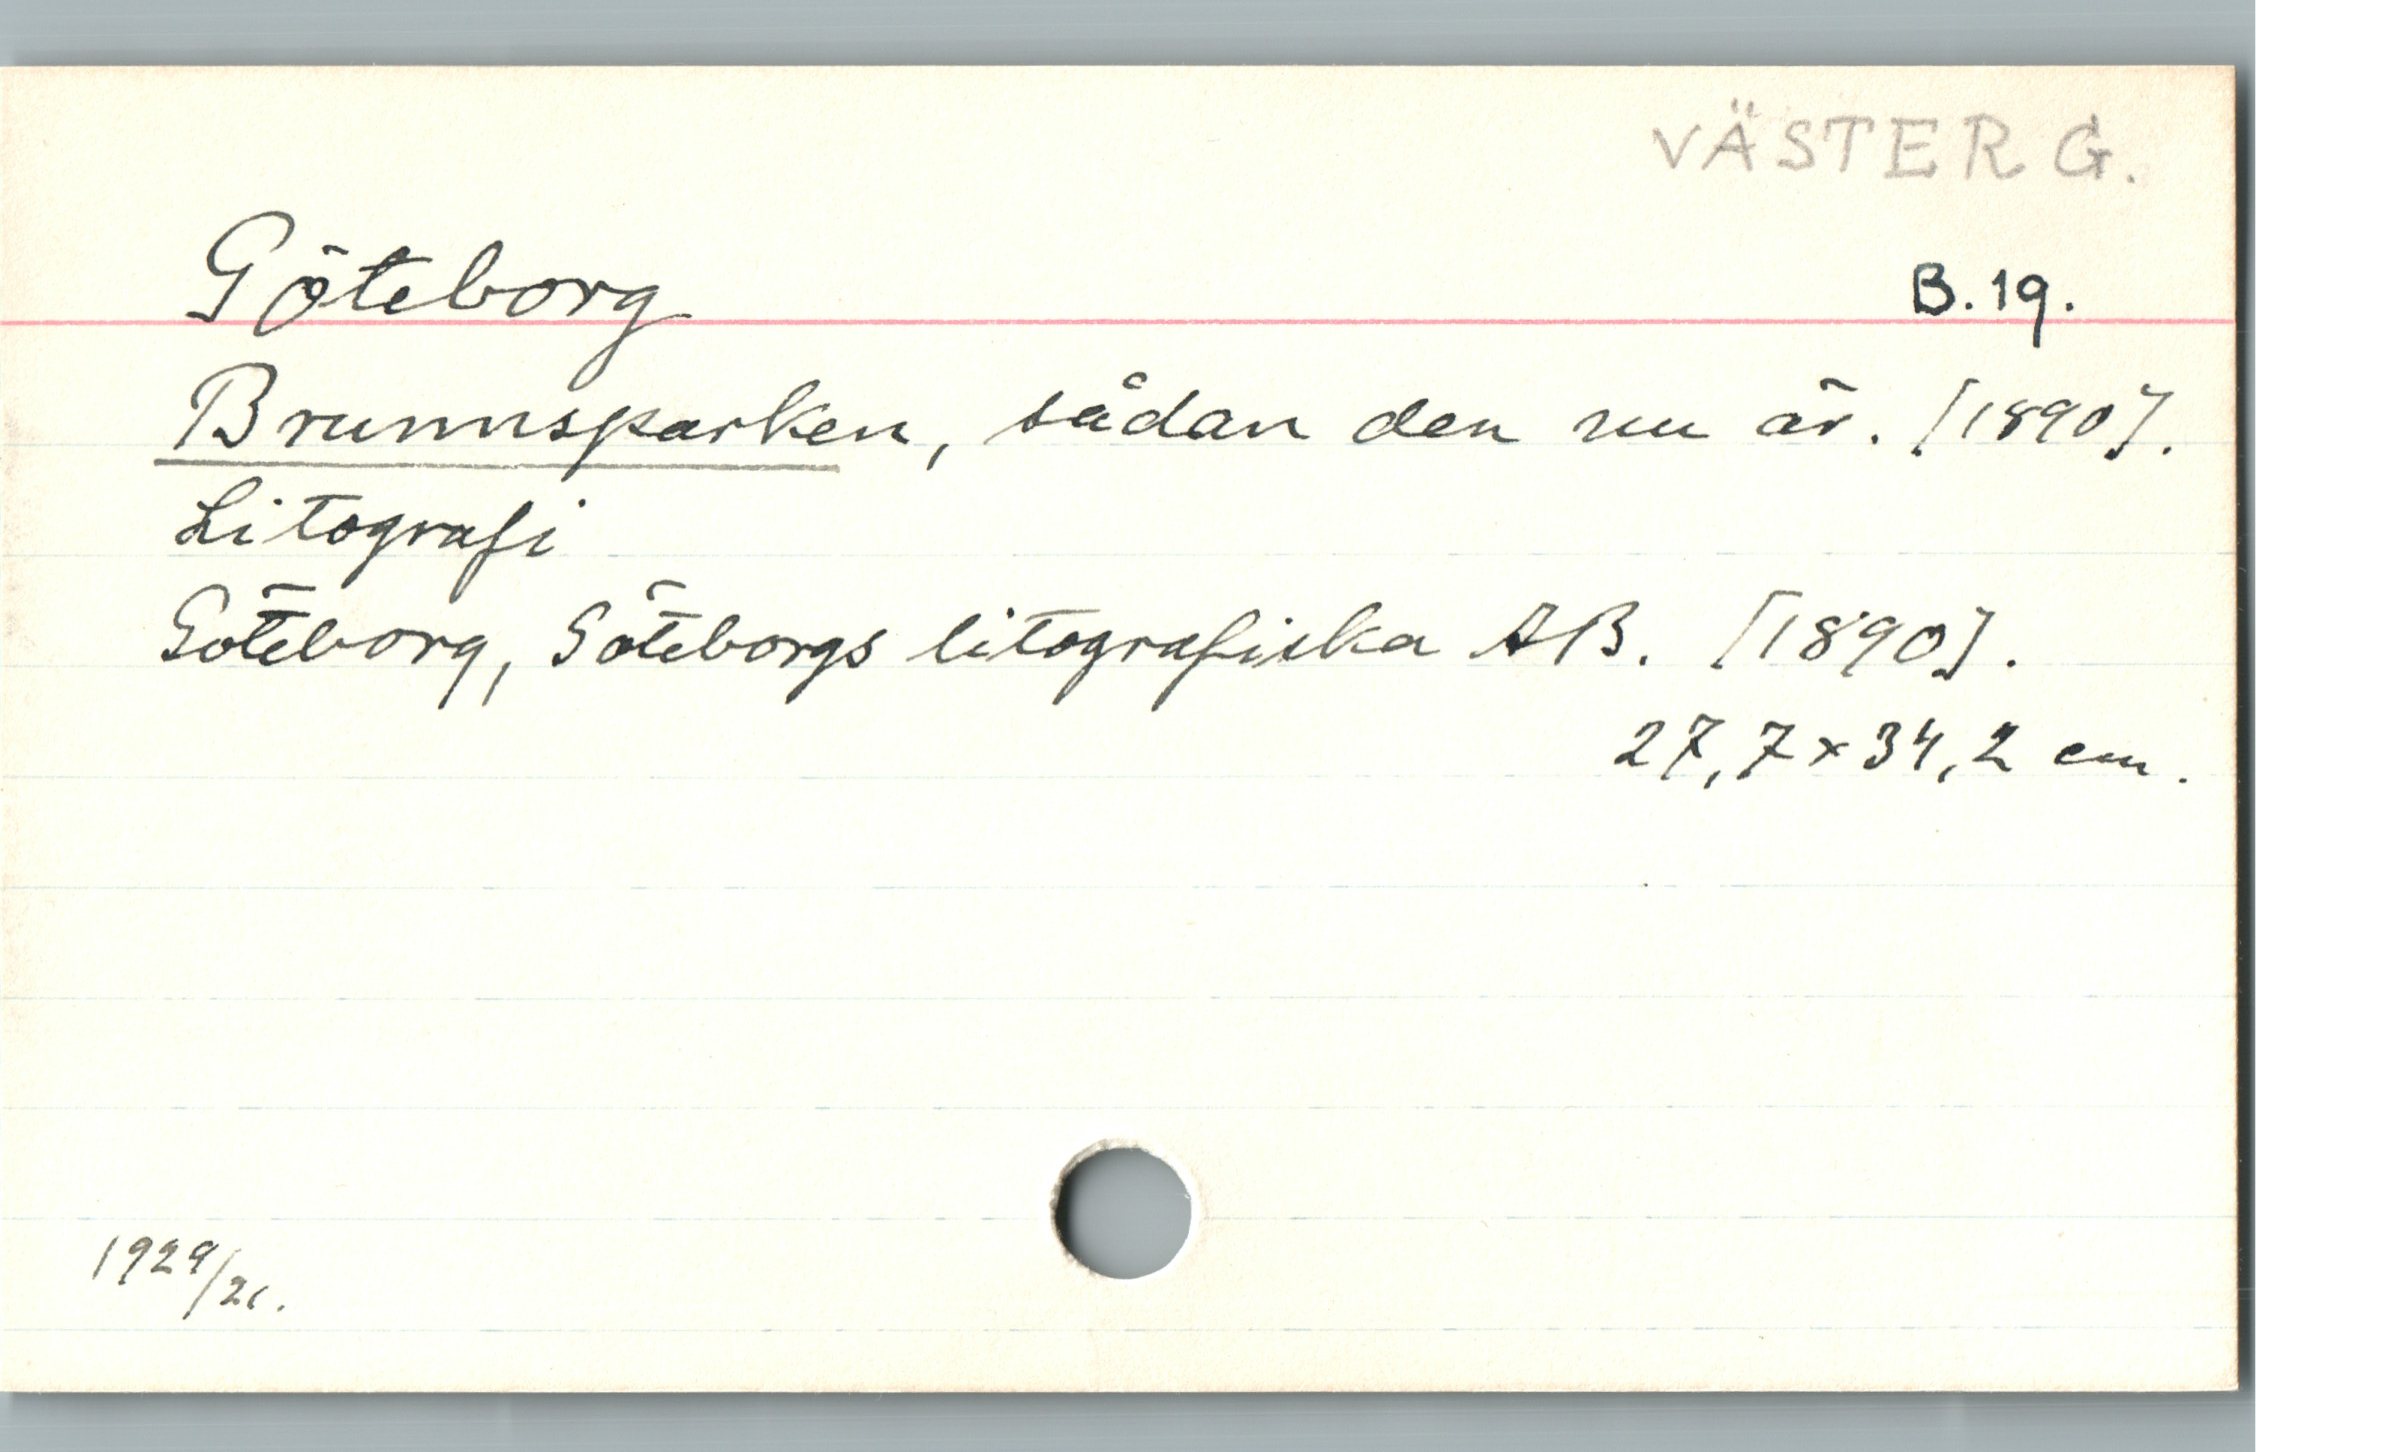 VÄSTERG.
Göteborg
B.19.
Brunnsparken, sådan den nu är. [1890].
Litografi
Göteborg, Göteborgs litografiska AB. [1890].
27,7 x 34,2 cm.
1929/21.